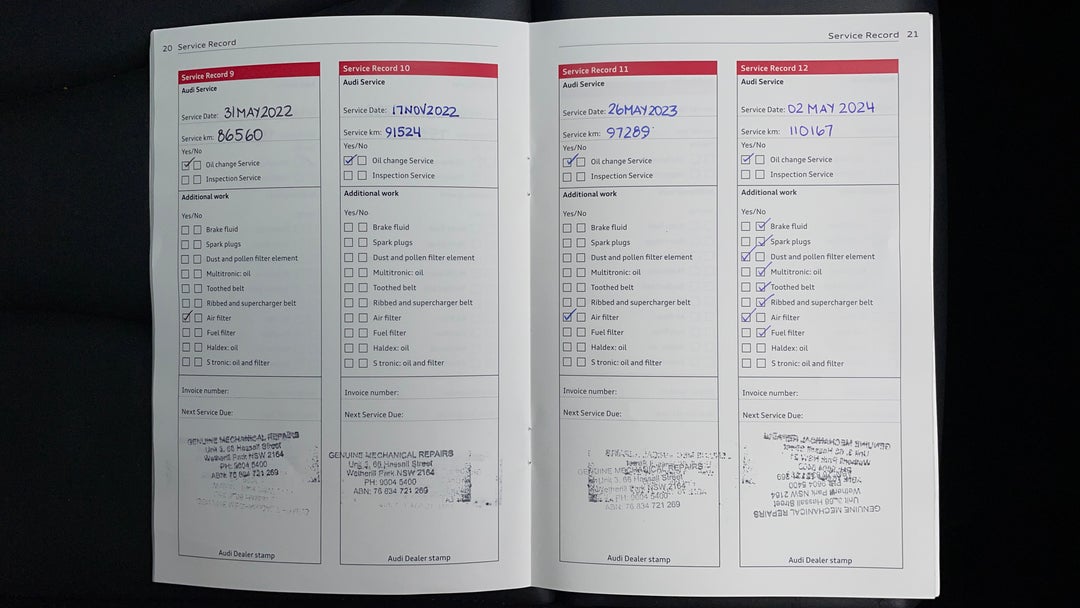 20 Service Record
Service Record 9
Audi Service
Service Date: 31 MAY 2022
Service km: 86560
Yes/No
Oil change Service
Inspection Service
Additional work
Yes/No
Brake fluid
Spark plugs
Dust and pollen filter element
Multitronic: oil
Toothed belt
Ribbed and supercharger belt
Air filter
Fuel filter
Haldex: oil
S tronic: oil and filter
Invoice number:
Next Service Due:
GENUINE MECHANICAL REPAIRS
Unit 3, 66 Hassall Street
Wetherill Park NSW 2164
PH: 9604 5400
ABN: 76 834 721 269
Audi Dealer stamp
Service Record 10
Audi Service
Service Date: 17 NOV 2022
Service km: 91524
Yes/No
Oil change Service
Inspection Service
Additional work
Yes/No
Brake fluid
Spark plugs
Dust and pollen filter element
Multitronic: oil
Toothed belt
Ribbed and supercharger belt
Air filter
Fuel filter
Haldex: oil
S tronic: oil and filter
Invoice number:
Next Service Due:
GENUINE MECHANICAL REPAIRS
Unit 3, 66 Hassall Street
Wetherill Park NSW 2164
PH: 9604 5400
ABN: 76 834 721 269
Audi Dealer stamp
Service Record 21
Service Record 11
Audi Service
Service Date: 26 MAY 2023
Service km: 97289
Yes/No
Oil change Service
Inspection Service
Additional work
Yes/No
Brake fluid
Spark plugs
Dust and pollen filter element
Multitronic: oil
Toothed belt
Ribbed and supercharger belt
Air filter
Fuel filter
Haldex: oil
S tronic: oil and filter
Invoice number:
Next Service Due:
GENUINE MECHANICAL REPAIRS
Unit 3, 66 Hassall Street
Wetherill Park NSW 2164
PH: 9604 5400
ABN: 76 834 721 269
Audi Dealer stamp
Service Record 12
Audi Service
Service Date: 02 MAY 2024
Service km: 110167
Yes/No
Oil change Service
Inspection Service
Additional work
Yes/No
Brake fluid
Spark plugs
Dust and pollen filter element
Multitronic: oil
Toothed belt
Ribbed and supercharger belt
Air filter
Fuel filter
Haldex: oil
S tronic: oil and filter
Invoice number:
Next Service Due:
GENUINE MECHANICAL REPAIRS
Unit 3, 66 Hassall Street
Wetherill Park NSW 2164
PH: 9604 5400
Audi Dealer stamp